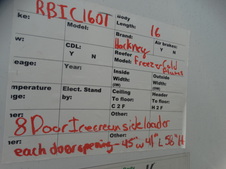 ke: RBIC160T Body Length: 16
Brand: Hackney Air brakes: Y N
CDL: Y N
Reefer Model: Freezer
eage: Year: Inside Width: Outside Width:
mperature age: Elect. Stand by: Ceiling To floor: Heading To floor:
C 2 F H 2 F
her:
8 Door Icecream side loader
each door opening - 45"w 41"L 56"H
Other: